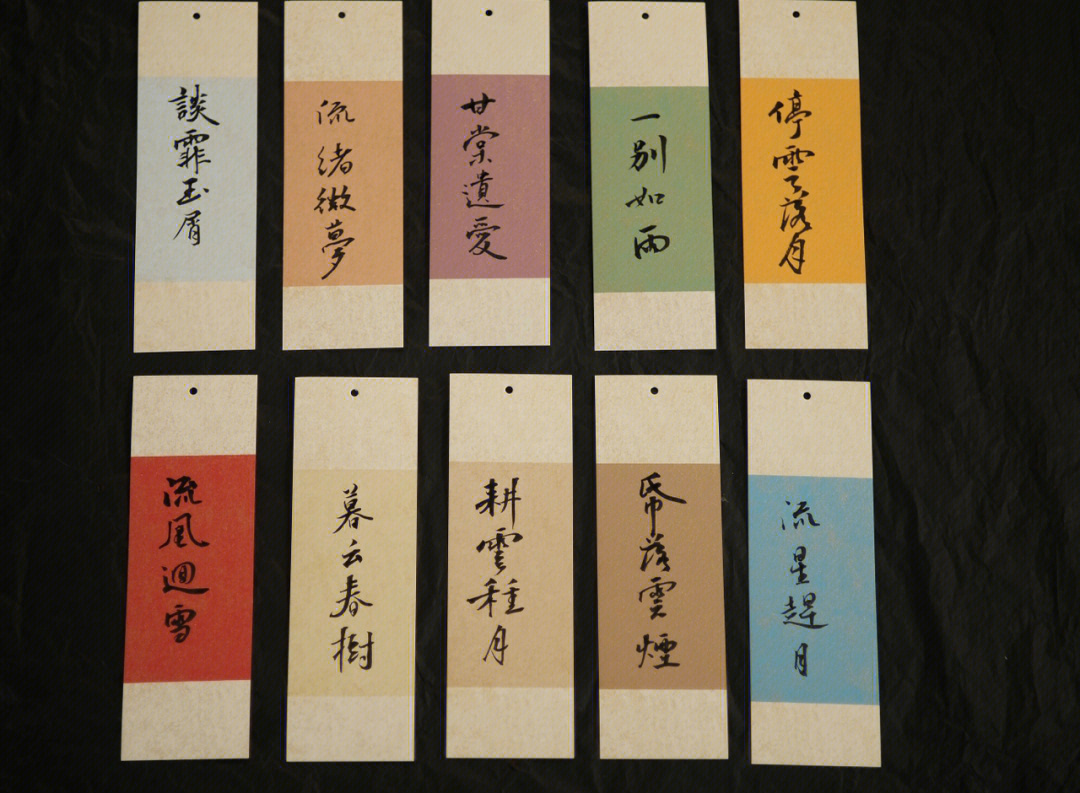 談霏玉屑
流緒微夢
甘棠遺愛
一别如雨
停雲落月
流風迴雪
暮云春樹
耕雲種月
帋落雲煙
流星趕月